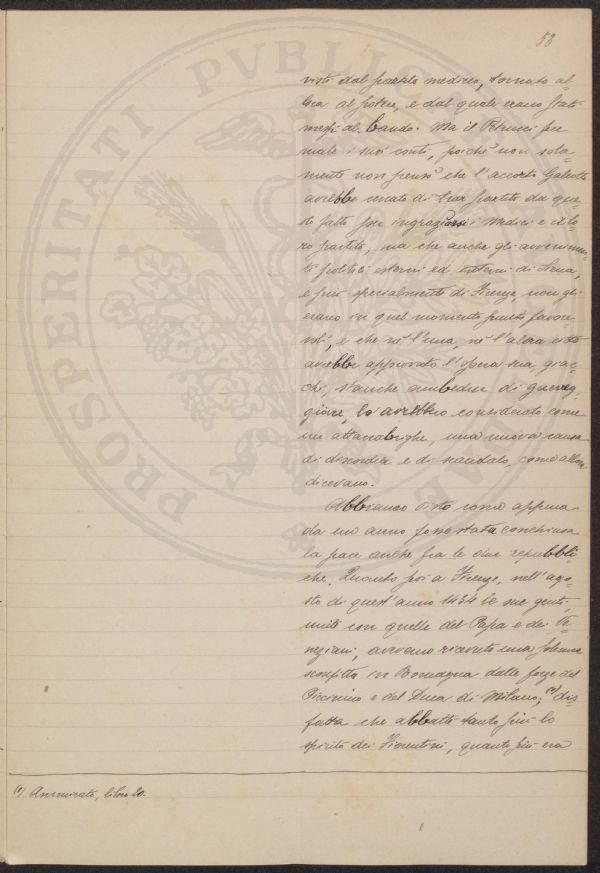 58
visti dal partito mediceo, tornato al-
lora al potere, e dal quale erano stati
messi al bando. Ma il Petrucci fece
male i suoi conti, poichè non sola-
mente non pensò che l'accorto Galeotto
avrebbe cercato di trar partito da que-
sto fatto per ingraziarsi i Medici e il lo-
ro partito, ma che anche gli avvenimen-
ti politici esterni ed interni di Siena,
e più specialmente di Firenze, non gli
erano in quel momento punto favore-
voli, e che nè l'una, nè l'altra città
avrebbe approvato l'opera sua, giac-
chè, stanche ambedue di guerreg-
giare, lo avrebbero considerato come
un attaccabrighe, una nuova causa
di discordia e di scandalo, come allora
dicevano.
Abbiamo visto come appena
da un anno fosse stata conchiusa
la pace anche fra le due repubbli-
che. Quanto poi a Firenze, nell'ago-
sto di quest'anno 1434 le sue genti,
unite con quelle del Papa e dei Ve-
neziani, avevano ricevuto una solenne
sconfitta in Romagna dalle forze del
Piccinino e del Duca di Milano; (1) dis-
fatta che abbattè tanto più lo
spirito dei Fiorentini, quanto più era
(1) Ammirato, libro 20.
PROSPERITATI PVBLICAE